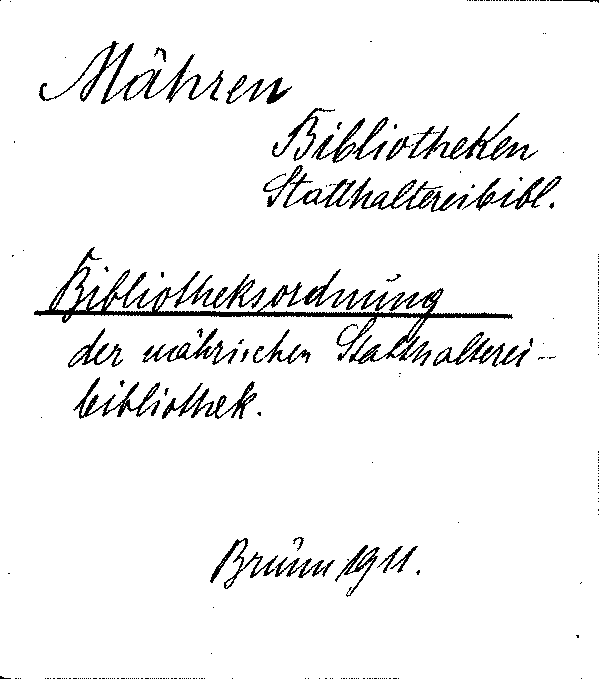 Mähren
Bibliotheken
Statthaltereibibl.
Bibliotheksordnung
der mährischen Statthalterei-
bibliothek.
Brünn 1911.